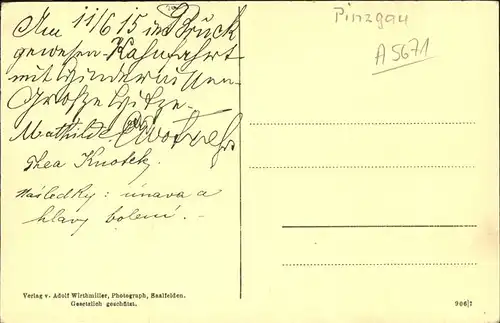 Am 11/6 15 in Bruck
gewesen. Kahnfahrt
mit Hindernissen.
Große Hitze.
Mathilde
Thea Knotek
Následky: únava a
hlavy bolení. -
Pinzgau
A5671
Verlag v. Adolf Wirthmiller, Photograph, Saalfelden.
Gesetzlich geschützt.
906/7